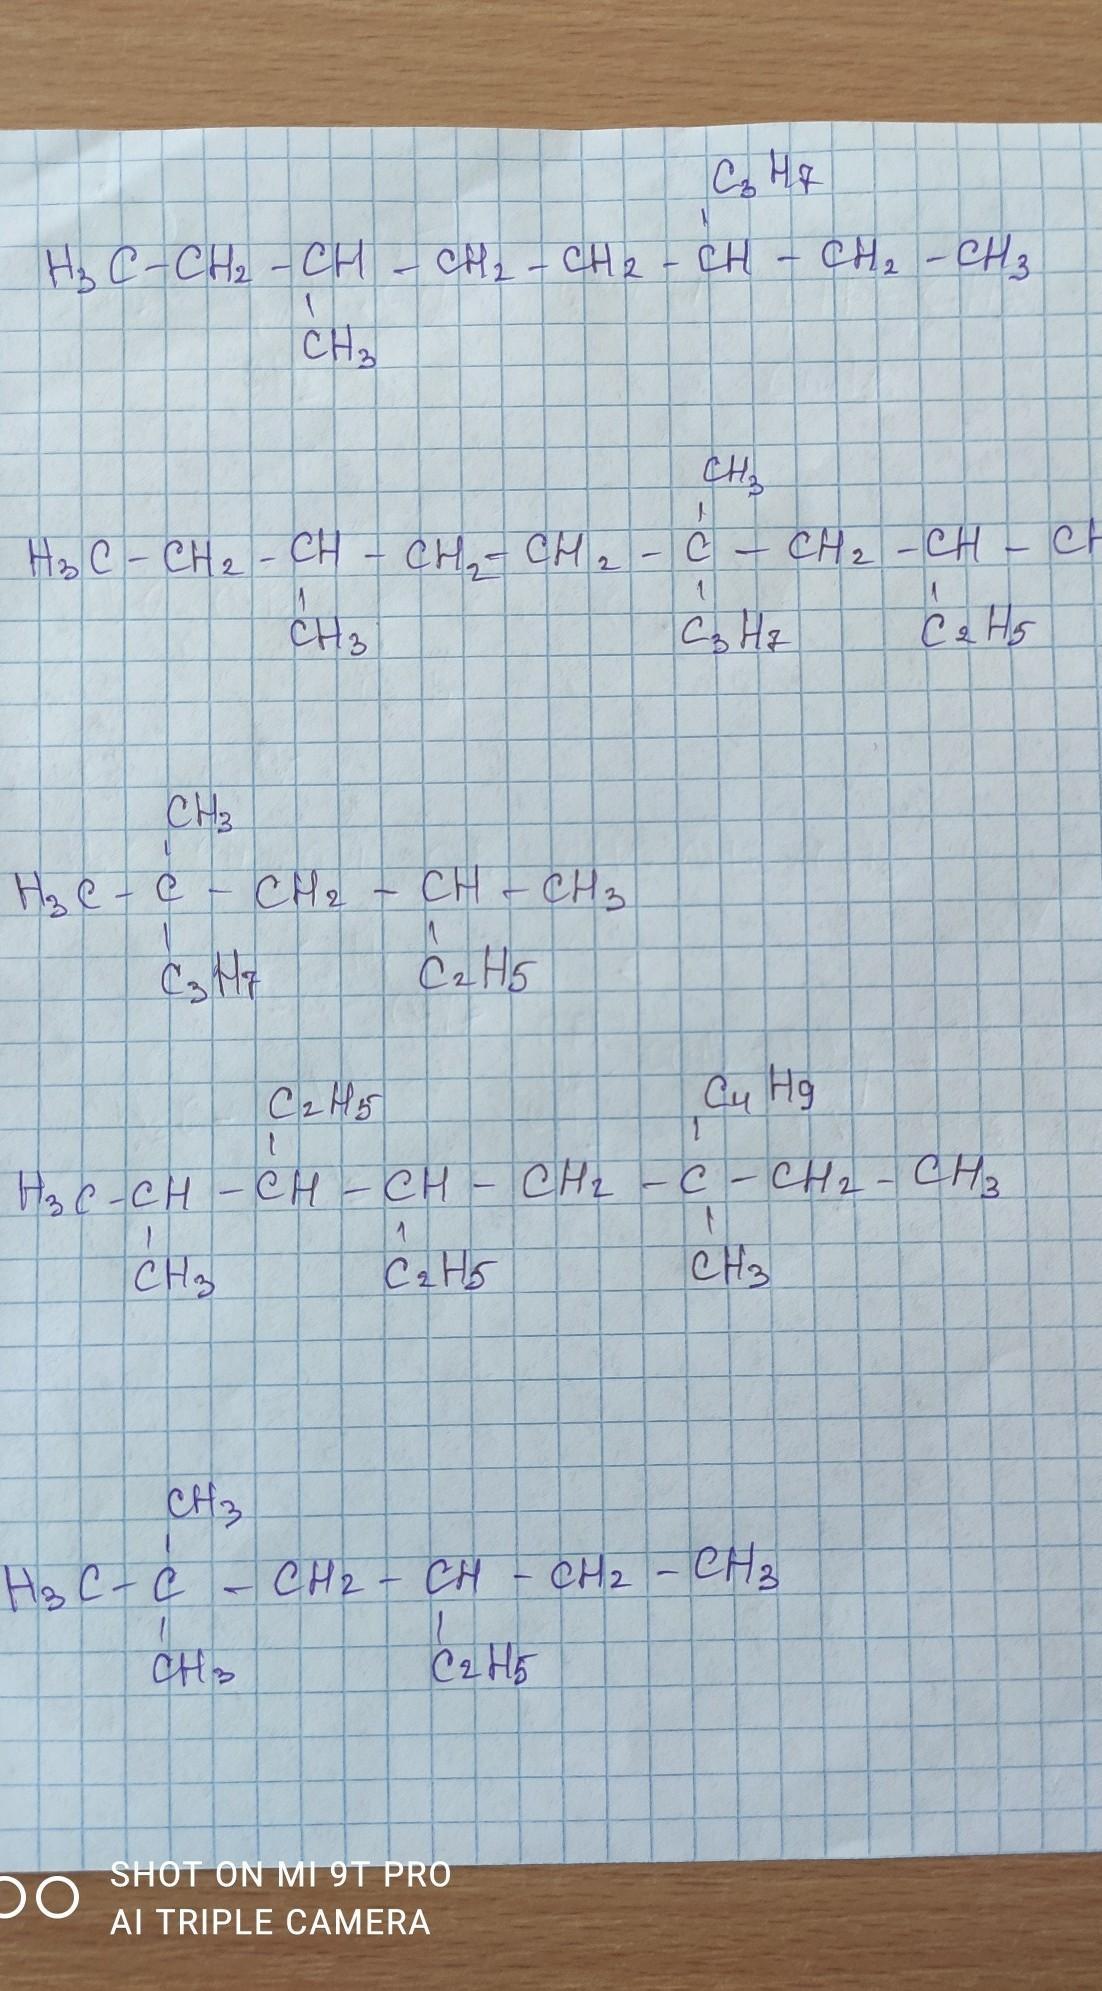 C₃H₇
H₃C-CH₂-CH-CH₂-CH₂-CH-CH₂-CH₃
CH₃
CH₃
H₃C-CH₂-CH-CH₂-CH₂-C-CH₂-CH-CH
CH₃ C₃H₇ C₂H₅
CH₃
H₃C-C-CH₂-CH-CH₃
C₃H₇ C₂H₅
C₂H₅ C₄H₉
H₃C-CH-CH-CH-CH₂-C-CH₂-CH₃
CH₃ C₂H₅ CH₃
CH₃
H₃C-C-CH₂-CH-CH₂-CH₃
CH₃ C₂H₅
SHOT ON MI 9T PRO
AI TRIPLE CAMERA